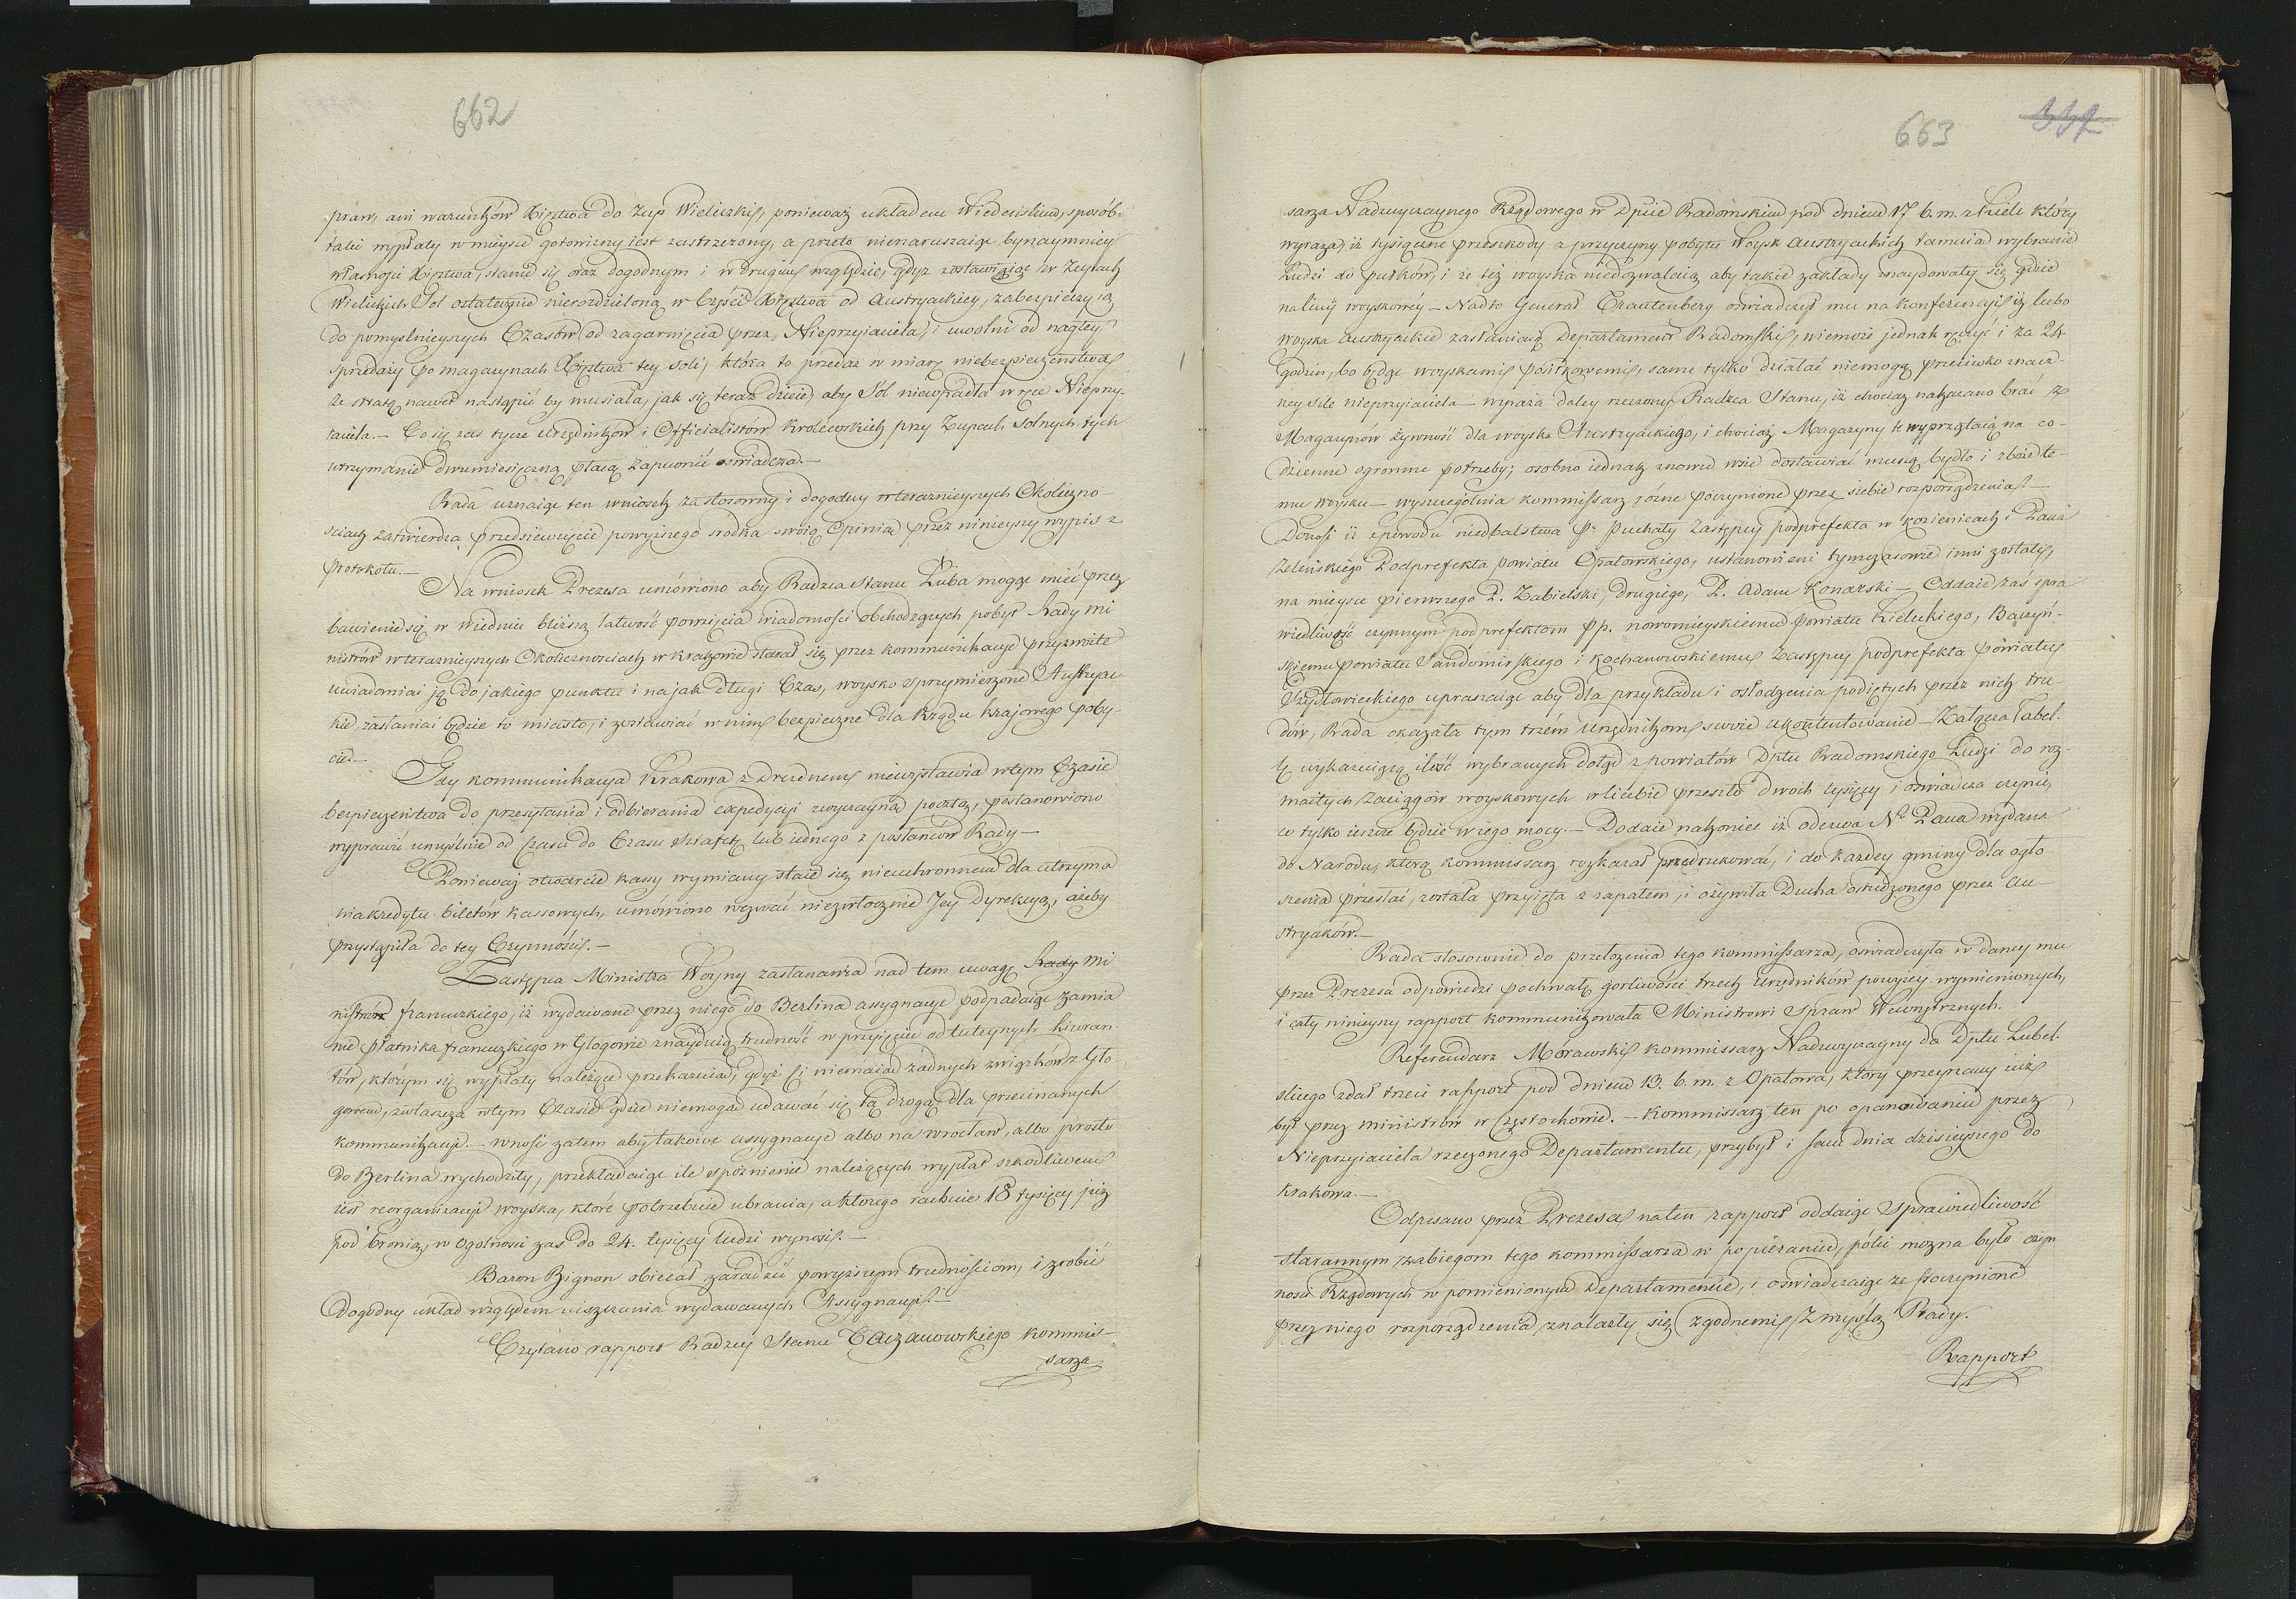 662
praw, ani warunków Xięztwa do Żup Wieliczki, ponieważ układem Wiedeńskim, sposób
takiej wypłaty w mieysce gotowizny iest zastrzeżony, a przeto nienaruszaiąc bynaymniey
własności Xięztwa, stanie się oraz dogodnym i w drugim względzie, gdyż zostawiaiąc w Żupach
Wielickich Sól ostatecznie nierozdzieloną w Części Xięztwa od Austryackiey, zabezpieczy ią
do pomyślnieyszych Czasów od zagarnięcia przez Nieprzyiaciela, i uwolni od nagłey
sprzedaży po magazynach Xięztwa tey soli, która to przedaż w miarę niebezpieczeństwa
ze stratą nawet nastąpić by musiała, jak się teraz dzieie, aby Sól niewpadła w ręce Nieprzy-
iaciela. – Co się zaś tycze Urzędników i Officialistów Królewskich przy Żupach Solnych tych
utrzymanie dwumiesięczną płacą zapewnić oświadcza. –
Rada uznaiąc ten wniosek za stosowny i dogodny w teraznieyszych Okoliczno-
ściach zatwierdza przedsięwzięcie powyższego srodka swoią Opinią przez ninieyszy wypis z
protokołu. –
Na wniosek Prezesa umówiono aby Radzca Stanu Łuba mogąc mieć przez
bawienie się w Wiedniu bliższą łatwość powzięcia wiadomości obchodzących pobyt Rady Mi
nistrów w teraznieyszych Okolicznościach w Krakowie starał się przez kommunikacye przyzwoite
uwiadomiać ją do jakiego punktu i na jak długi Czas, woysko sprzymierzone Austryac-
kie, zasłaniać będzie to miasto, i zostawiać w nim bezpieczne dla Rządu Krajowego poby-
cie. –
Gdy kommunikacya Krakowa z Dreznem niewystawia w tym Czasie
bezpieczeństwa do przesyłania i odbierania expedycyi zwyczayną pocztą, postanowiono
wyprawić umyślnie od Czasu do Czasu Sztafetę lub iednego z posłańców Rady –
Ponieważ otwarcie kassy wymiany staie się nieuchronnem dla utrzyma
nia kredytu biletów kassowych, umówiono wezwać niezwłocznie Jey Dyrekcyą, ażeby
przystąpiła do tey Czynności. –
Zastępca Ministra Woyny zastanawia nad tem uwagę Rady Mi
nistra francuzkiego, iż wydawane przez niego do Berlina assygnacye podpadaiąc zamia
nie płatnika francuzkiego w Głogowie znayduią trudność w przyięciu od tuteyszych liweran-
tów, którym się wypłaty należące przekazuią, gdyż Ci niemaią żadnych związków z Gło
gowem, zwłaszcza w tym Czasie gdzie niemogą udawać się tą drogą dla przecinanych
kommunikacyi. – wnosi zatem aby takowe assygnacye albo na Wrocław, albo prosto
do Berlina wychodziły, przekładaiąc ile spóźnienie należących wypłat szkodliwem
iest reorganizacyi woyska, które potrzebuie ubrania, a którego rachuie 18 tysięcy już
pod bronią, w ogolności zaś do 24. tysięcy ludzi wynosi. –
Baron Bignon obiecał zaradzić powyższym trudnościom, i zrobić
Dogodny układ względem uiszczania wydawanych Assygnacyi. –
Czytano rapport Radzcy Stanu Taczanowskiego Kommis-
sarza
663
sarza Nadzwyczaynego Rządowego w Dpcie Radomskim pod dniem 17 b. m. z Kielc który
wyraża, iż tysiączne przeszkody z przyczyny pobytu Woysk Austryackich tamuią wybranie
Ludzi do pułków, i że też woyska niedozwalaią aby takie zakłady znaydowały się gdzie
na linii woyskowéy – Nadto Generał Trautenberg oświadczył mu na konferencyi iż lubo
woyska Austryackie zasłaniaią Departament Radomski, niemoże jednak ręczyć i za 24.
godzin, bo będąc woyskami posiłkowemi, same tylko działać niemogą przeciwko znacz-
ney sile nieprzyiaciela – wyraża daley rzeczony Radzca Stanu, iż chociaż nakazano brać z
Magazynów żywność dla woyska Austryackiego, i chociaż Magazyny te wyprzątaią na co-
dzienne ogromne potrzeby; osobno iednak znowu wsie dostawiać muszą bydło i zboże te-
mu woysku – wyszczególnia Kommissarz różne poczynione przez siebie rozporządzenia –
Donosi iż z powodu niedbalstwa P. Puchały Zastępcy podprefekta w Kozienicach i Pana
Zeleńskiego Podprefekta Powiatu Opatowskiego, ustanowieni tymczasowie inni zostali,
na mieysce pierwszego P. Zabielski, drugiego, P. Adam Konarski – Oddaie zaś spra
wiedliwość czynnym podprefektom PP. nowomieyskiemu Powiatu Kieleckiego, Baczyń-
skiemu Powiatu Sandomirskiego i Kochanowskiemu Zastępcy podprefekta Powiatu
Szydłowieckiego upraszaiąc aby dla przykładu i osłodzenia podiętych przez nich tru-
dów, Rada okazała tym trzem Urzędnikom swoie ukontentowanie – Załącza Tabel-
lę wykazuiącą ilość wybranych dotąd z powiatów Dptu Radomskiego Ludzi do roz-
maitych Zaciągów woyskowych w liczbie przeszło dwóch tysięcy i oświadcza czynić,
co tylko ieszcze będzie w iego mocy. – Dodaie nakoniec iż odezwa N. Pana wydana
do Narodu, którą kommissarz rozkazał przedrukować, i do każdey gminy dla ogło
szenia przesłać, została przyięta z zapałem, i ożywiła Ducha ostudzonego przez Au-
stryaków. –
Rada stosownie do przełożenia tego kommissarza, oświadczyła w daney mu
przez Prezesa odpowiedzi pochwałę gorliwości trzech Urzędników powyżéy wymienionych,
i cały ninieyszy rapport kommunikowała Ministrowi Spraw Wewnętrznych.
Referendarz Morawski Kommissarz Nadzwyczayny do Dptu Lubel-
skiego zdał trzeci rapport pod dniem 13. b. m. z Opatowa, który przeyrzany już
był przez ministrów w Częstochowie. – Kommissarz ten po opanowaniu przez
Nieprzyiaciela rzeczonego Departamentu, przybył i sam dnia dzisieyszego do
Krakowa. –
Odpisano przez Prezesa na ten rapport oddaiąc Sprawiedliwość
starannym zabiegom tego kommissarza w popieraniu, póki można było czyn
ności Rządowych w pomienionym Departamencie, i oświadczaiąc że poczynione
przez niego rozporządzenia znalazły się zgodnemi z myślą Rady.
Rapport